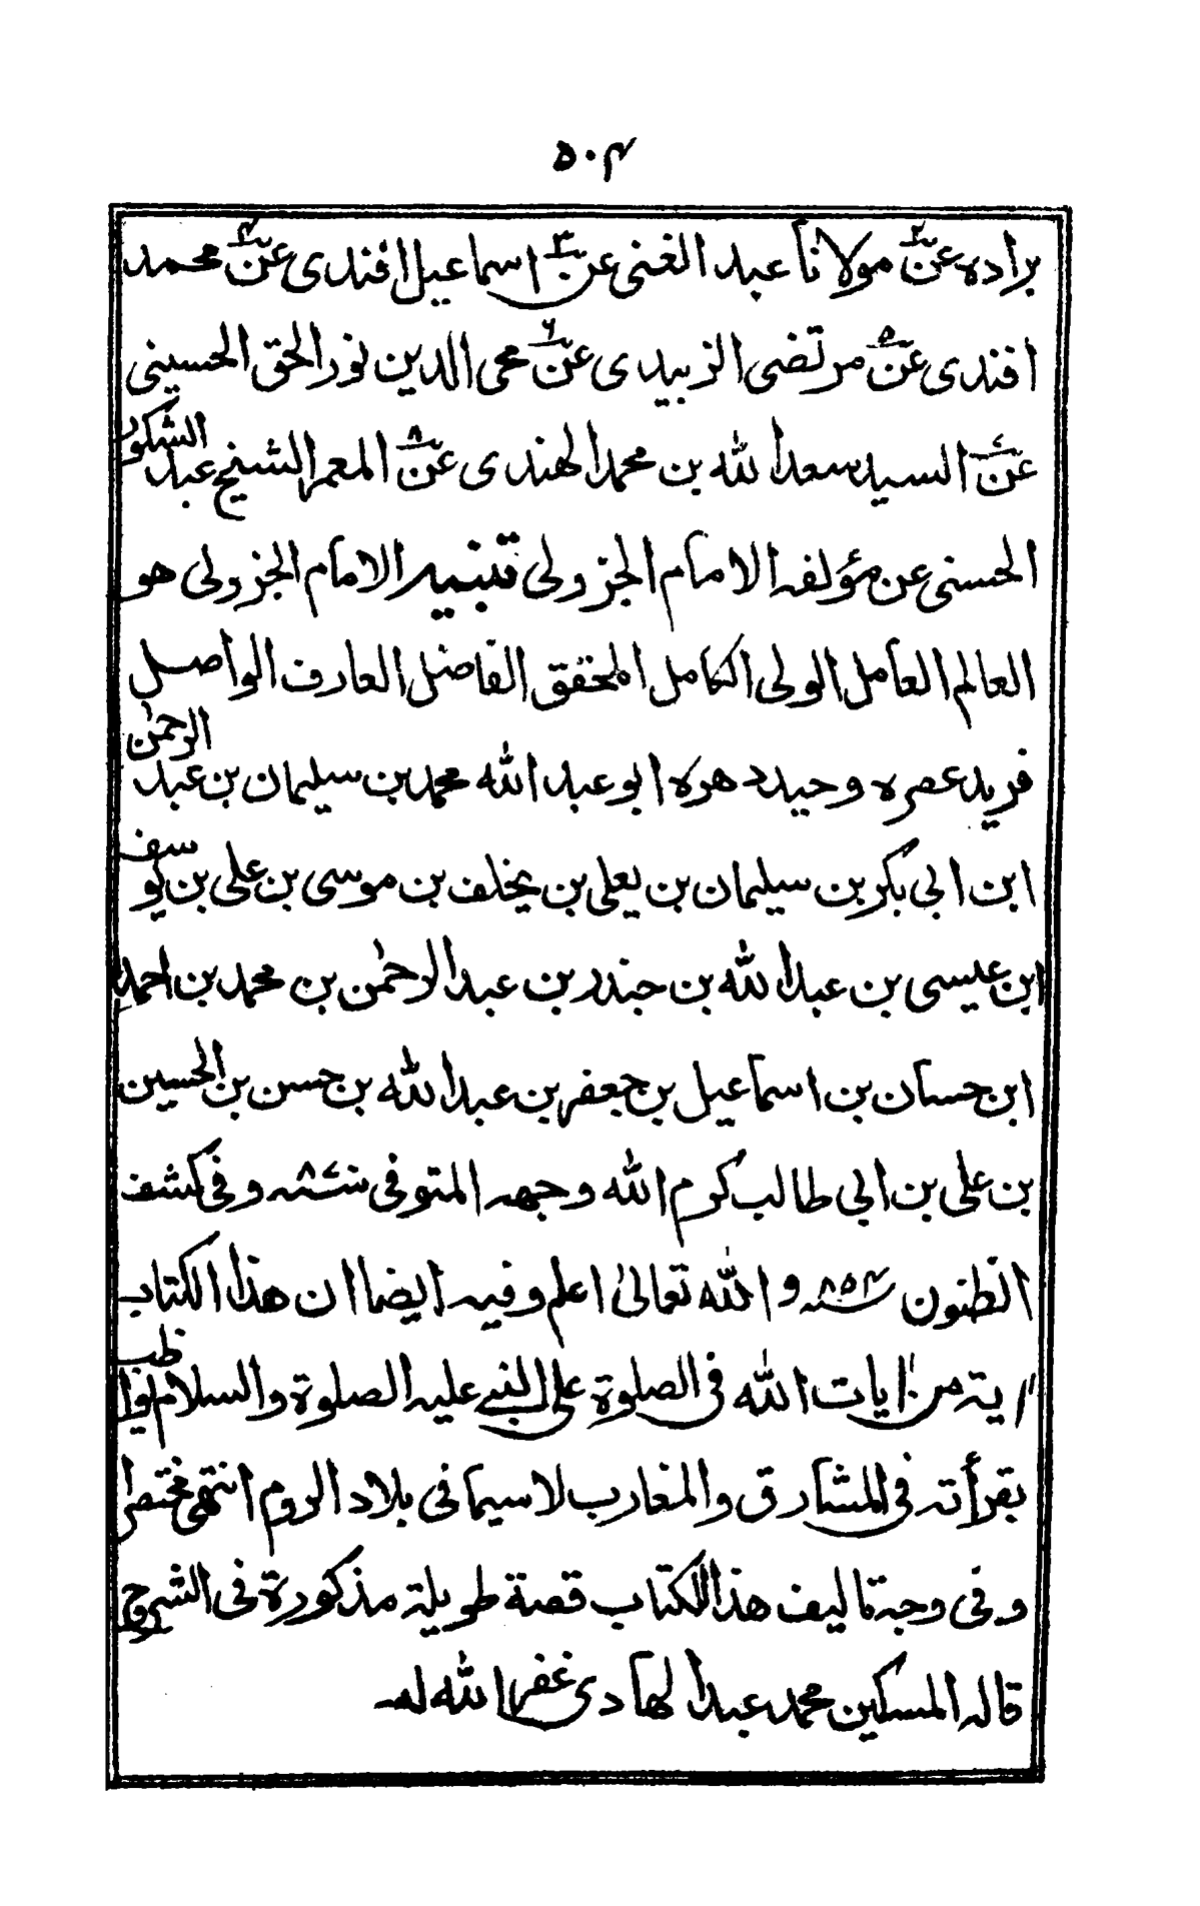 ٥٠٤
براده عن٢ مولانا عبد الغنى عن٣ اسماعيل افندى عن٤ محمد
افندى عن٥ مرتضى الزبيدى عن٦ محى الدين نور الحق الحسينى
عن٧ السيد سعد الله بن محمد الهندى عن٨ المعمر الشيخ عبد الشكور
الحسنى عن مؤلفه الامام الجزولى تنبيه الامام الجزولى هو
العالم العامل الولى الكامل المحقق الفاضل العارف الواصل
فريد عصره وحيد دهره ابو عبد الله محمد بن سليمان بن عبد الرحمٰن
ابن ابى بكر بن سليمان بن يعلى بن يخلف بن موسى بن على بن يوسف
ابن عيسى بن عبد الله بن جندر بن عبد الرحمٰن بن محمد بن احمد
ابن حسان بن اسماعيل بن جعفر بن عبد الله بن حسن بن الحسين
بن على بن ابى طالب كرم الله وجهه المتوفى سنه ٨٧٠ وفى كشف
الظنون سنه ٨٥٤ والله تعالىٰ اعلم وفيه ايضا ان هذا الكتاب
اٰية من اٰيات الله فى الصلوة على النبى عليه الصلوة والسلام يواظب
بقرأته فى المشارق والمغارب لا سيما فى بلاد الروم انتهى مختصرا
وفى وجه تاليف هذا الكتاب قصة طويلة مذكورة فى الشروح
قاله المسكين محمد عبد الهادى غفر الله له